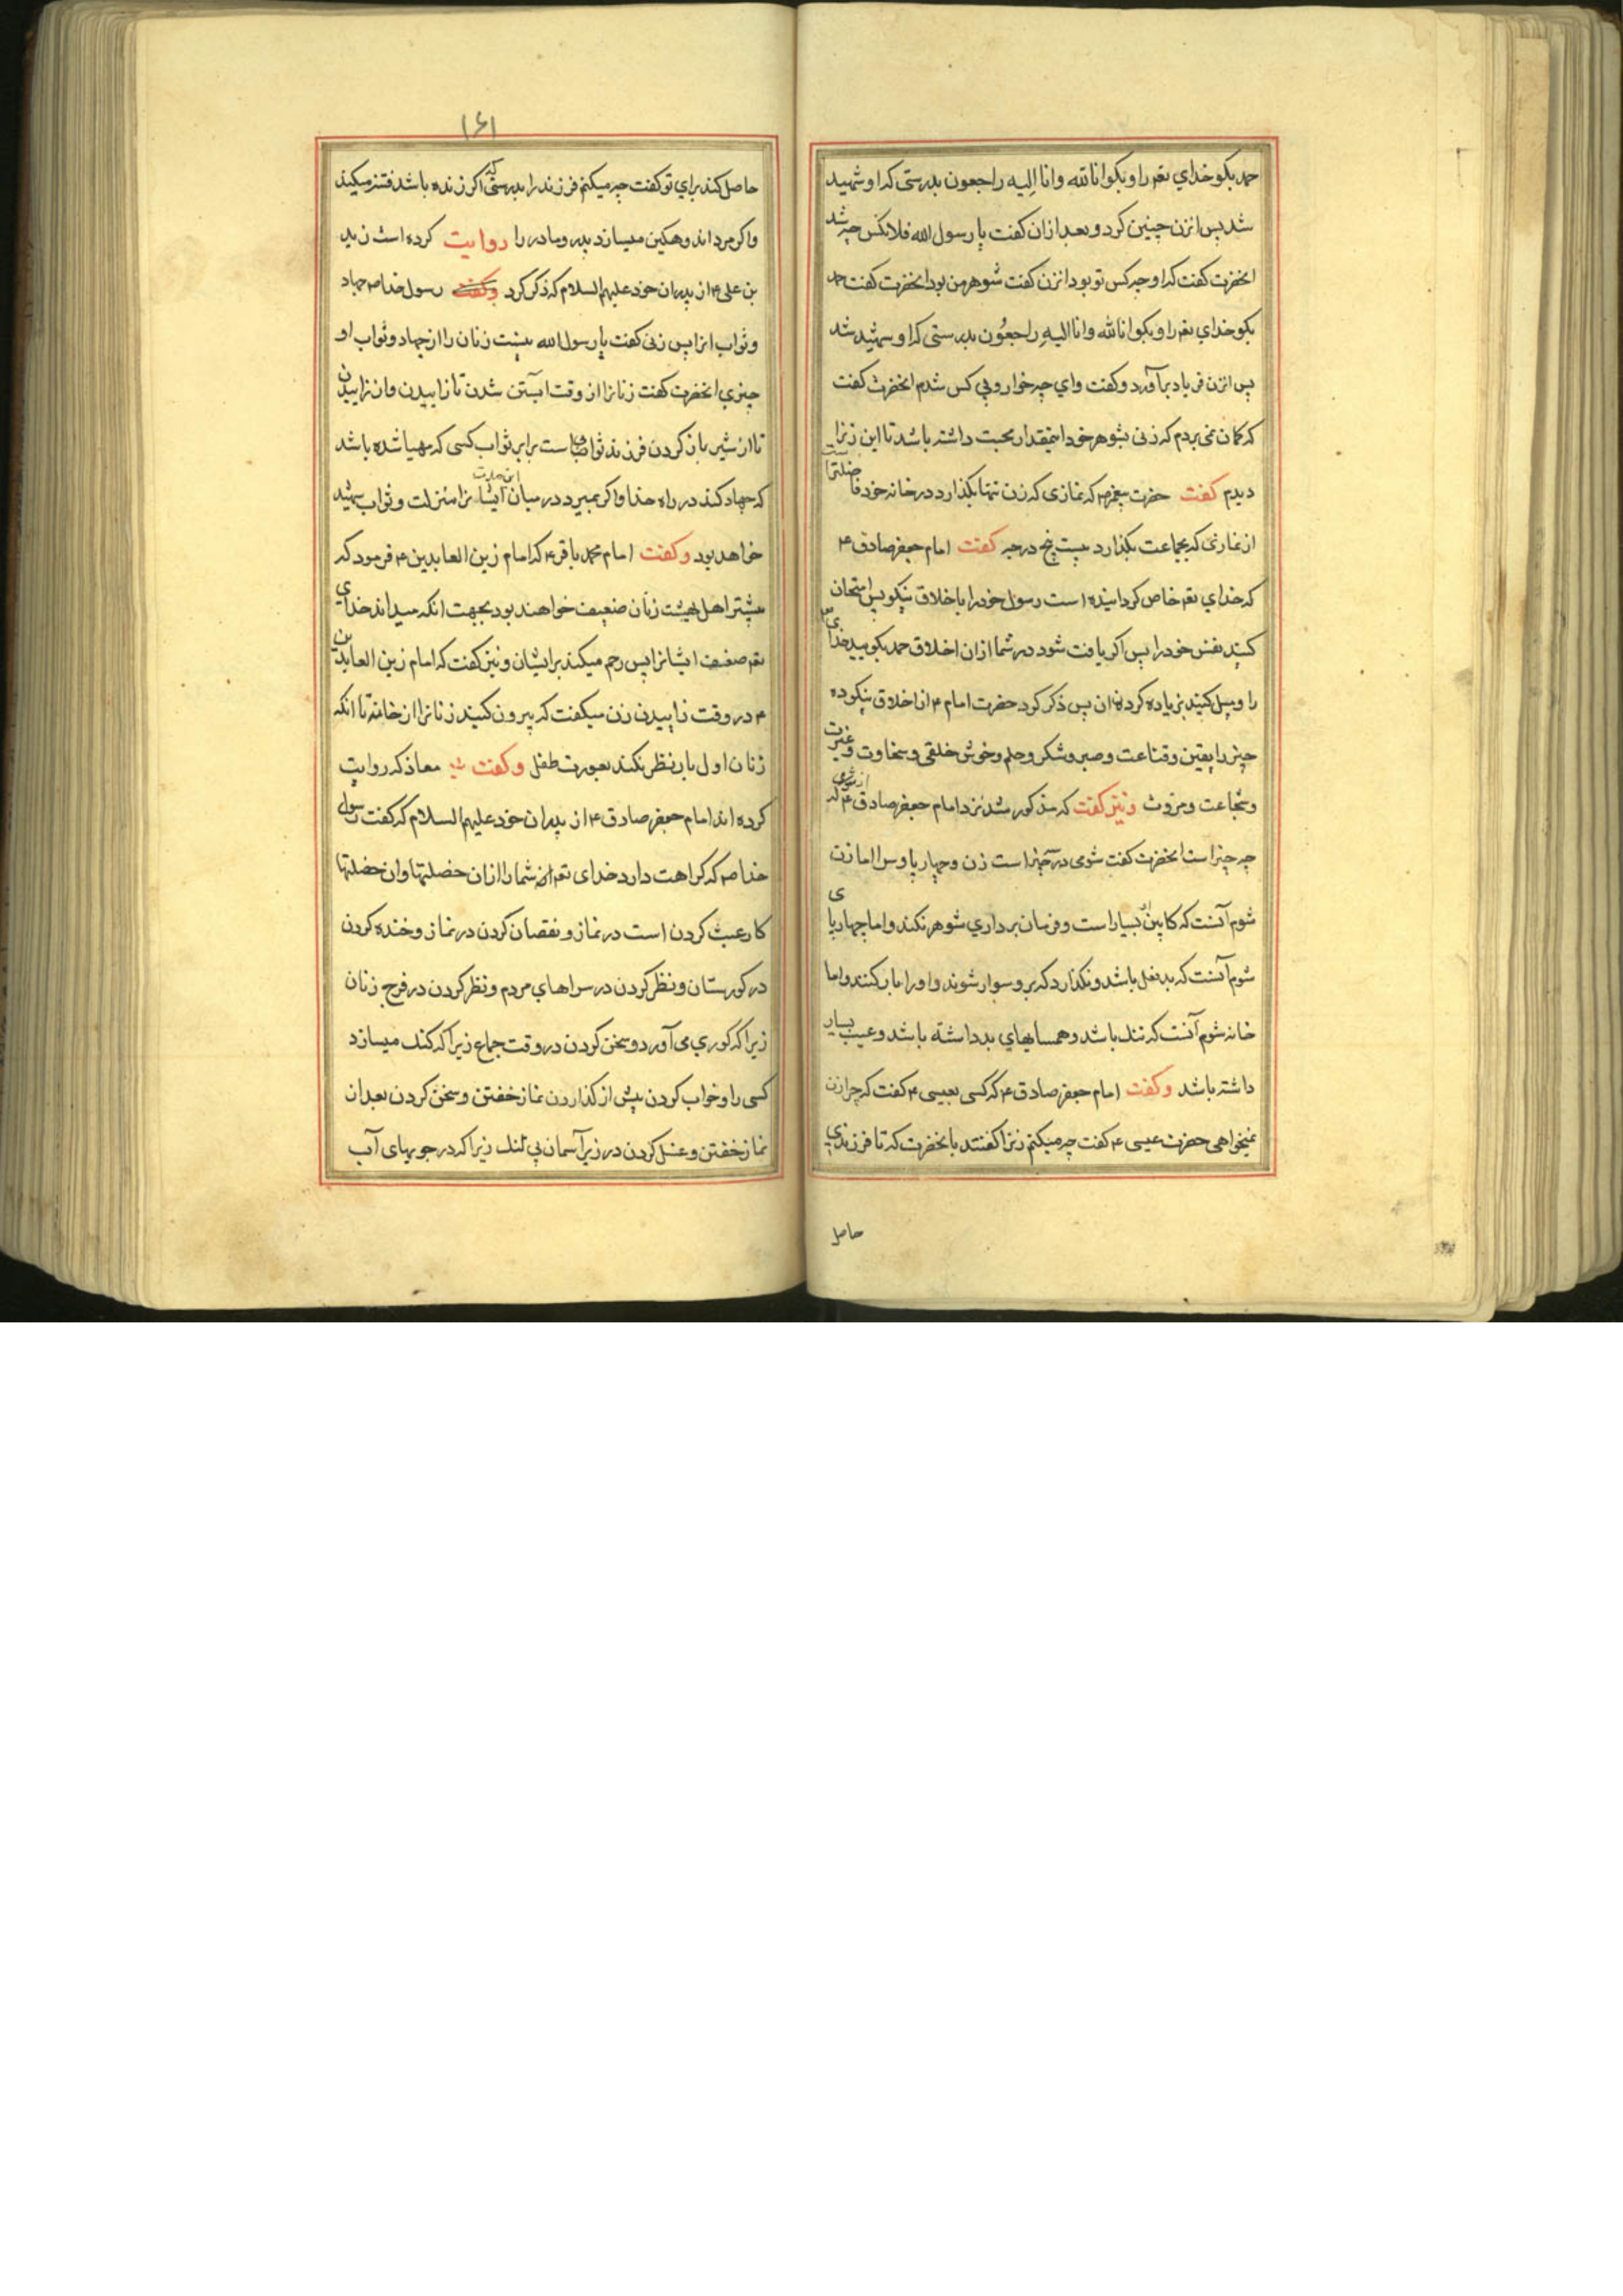 حمد بکو خدای تعم را و بکو انا لله وانا الیه راجعون بدرستی که او شهید
شد پس انزن چنین کرد و بعد ازان کفت یا رسول الله فلانکس چه شد
انحضرت کفت که او چه کس تو بود انزن کفت شوهر من بود انحضرت کفت حمد
بکو خدای تعم را و بکو انا لله وانا الیه راجعون بدرستی که او شهید شد
پس انزن فریاد برآورد و کفت وای چه خوار و بی کس شدم انحضرت کفت
که کمان نمی بردم که زنی بشوهر خود اینمقدار محبت داشته باشد تا این زنرا
دیدم کفت حضرت پیغمبر صم که نمازی که زن تنها بکذارد در خانه خود فاضلترا
از نمازی که بجماعت بکذارد بیست پنج درجه کفت امام جعفر صادق ع
که خدای تعم خاص کردانیده است رسول خود را باخلاق نیکو پس امتحان
کنید نفس خود را پس اکر یافت شود در شما ازان اخلاق حمد بکویید خدای
را و میل کنید بزیاده کردن ان پس ذکر کرد حضرت امام ع از اخلاق نیکو ده
چیز را یقین و قناعت و صبر و شکر و حلم و خوش خلقی و سخاوت و غیرت
و شجاعت و مروت و نیز کفت که مذکور شد نزد امام جعفر صادق ع از شومی که
چه چیز است انحضرت کفت شومی در سه چیز است زن و چهارپا و سرا اما زن
شوم آنست که کابین او بسیار است و فرمان برداری شوهر نکند و اما چهارپای
شوم آنست که بد نعل باشد و نکذارد که برو سوار شوند و او را بار کنند و اما
خانه شوم آنست که تنک باشد و همسایهای بد داشته باشد و عیب بسیار
داشته باشد و کفت امام جعفر صادق ع که کسی بعیسی ع کفت که چرا زن
نمیخواهی حضرت عیسی ع کفت چه میکنم زنرا کفتند بانحضرت که تا فرزندی
حاصل
۱۶۱
حاصل کند برای تو کفت چه میکنم فرزند را بدرستی که اکر زنده باشد فتنه میکند
و اکر مرد اندوهکین میسازد پدر و مادر را روایت کرده است زید
بن علی ع از پدران خود علیهم السلام که ذکر کرد و کفت رسول خدا صم جهاد
و ثواب انرا پس زنی کفت یا رسول الله نیست زنان را از جهاد و ثواب او
چیزی انحضرت کفت زنانرا از وقت آبستن شدن تا زاییدن و ان زاییدن
تا از شیر باز کردن فرزند ثوابی است برابر ثواب کسی که مهیا شده باشد
که جهاد کند در راه خدا و اکر بمیرد در میان این مدت ایشانرا منزلت و ثواب شهید
خواهد بود و کفت امام محمد باقر ع که امام زین العابدین ع فرمود که
بیشتر اهل بهشت زنان ضعیف خواهند بود بجهت انکه میداند خدای
تعم ضعف ایشانرا پس رحم میکند بر ایشان و نیز کفت که امام زین العابدین
ع در وقت زاییدن زن میکفت که بیرون کنید زنانرا از خانه تا انکه
زنان اول بار نظر نکنند بعورت طفل و کفت معاذ که روایت
کرده اند امام جعفر صادق ع از پدران خود علیهم السلام که کفت رسول
خدا صم که کراهت دارد خدای تعم از شما را ازان خصلتها و ان خصلتها
کار عبث کردن است در نماز و نقصان کردن در نماز و خنده کردن
در کورستان و نظر کردن در سراهای مردم و نظر کردن در فرج زنان
زیرا که کوری می آورد و سخن کردن در وقت جماع زیرا که کنک میسازد
کسی را و خواب کردن پیش از کذاردن نماز خفتن و سخن کردن بعد ان
نماز خفتن و غسل کردن در زیر آسمان بی لنک زیرا که در جویهای آب